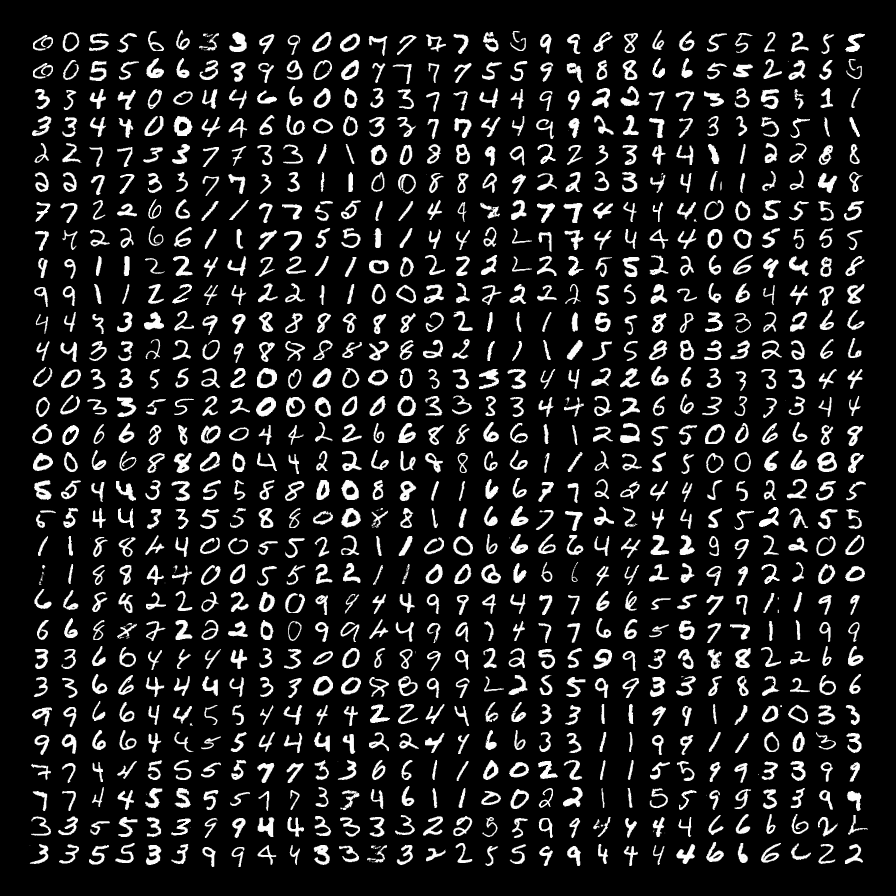 0 0 5 5 6 6 3 3 9 9 0 0 7 7 7 7 5 5 9 9 8 8 6 6 5 5 2 2 5 5
0 0 5 5 6 6 3 3 9 9 0 0 7 7 7 7 5 5 9 9 8 8 6 6 5 5 2 2 5 5
3 3 4 4 0 0 4 4 6 6 0 0 3 3 7 7 4 4 9 9 2 2 7 7 3 3 5 5 1 1
3 3 4 4 0 0 4 4 6 6 0 0 3 3 7 7 4 4 9 9 2 2 7 7 3 3 5 5 1 1
2 2 7 7 3 3 7 7 3 3 1 1 0 0 8 8 9 9 2 2 3 3 4 4 1 1 2 2 8 8
2 2 7 7 3 3 7 7 3 3 1 1 0 0 8 8 9 9 2 2 3 3 4 4 1 1 2 2 4 8
7 7 2 2 6 6 1 1 7 7 5 5 1 1 4 4 2 2 7 7 4 4 4 4 0 0 5 5 5 5
7 7 2 2 6 6 1 1 7 7 5 5 1 1 4 4 2 2 7 7 4 4 4 4 0 0 5 5 5 5
9 9 1 1 2 2 4 4 2 2 1 1 0 0 2 2 2 2 2 2 5 5 2 2 6 6 9 4 8 8
9 9 1 1 2 2 4 4 2 2 1 1 0 0 2 2 7 2 2 2 5 5 2 2 6 6 4 4 8 8
4 4 3 3 2 2 9 9 8 8 8 8 8 8 0 2 1 1 1 1 5 5 8 8 3 3 2 2 6 6
4 4 3 3 2 2 0 9 8 8 8 8 8 8 2 2 1 1 1 1 5 5 8 8 3 3 2 2 6 6
0 0 3 3 5 5 2 2 0 0 0 0 0 0 3 3 3 3 4 4 2 2 6 6 3 3 3 3 4 4
0 0 3 3 5 5 2 2 0 0 0 0 0 0 3 3 3 3 4 4 2 2 6 6 3 3 3 3 4 4
0 0 6 6 8 8 0 0 4 4 2 2 6 6 8 8 6 6 1 1 2 2 5 5 0 0 6 6 8 8
0 0 6 6 8 8 0 0 4 4 2 2 6 6 8 8 6 6 1 1 2 2 5 5 0 0 6 6 8 8
5 5 4 4 3 3 5 5 8 8 0 0 8 8 1 1 6 6 7 7 2 2 4 4 5 5 2 2 5 5
5 5 4 4 3 3 5 5 8 8 0 0 8 8 1 1 6 6 7 7 2 2 4 4 5 5 2 2 5 5
1 1 8 8 4 4 0 0 5 5 2 2 1 1 0 0 6 6 6 6 4 4 2 2 9 9 2 2 0 0
1 1 8 8 4 4 0 0 5 5 2 2 1 1 0 0 6 6 6 6 4 4 2 2 9 9 2 2 0 0
6 6 8 8 2 2 2 2 0 0 9 9 4 4 9 9 4 4 7 7 6 6 5 5 7 7 1 1 9 9
6 6 8 8 7 2 2 2 0 0 9 9 4 4 9 9 7 4 7 7 6 6 5 5 7 7 1 1 9 9
3 3 6 6 4 4 4 4 3 3 0 0 8 8 9 9 2 2 5 5 9 9 3 3 8 8 2 2 6 6
3 3 6 6 4 4 4 4 3 3 0 0 8 8 9 9 2 2 5 5 9 9 3 3 8 8 2 2 6 6
9 9 6 6 4 4 5 5 4 4 4 4 2 2 4 4 6 6 3 3 1 1 9 9 1 1 0 0 3 3
9 9 6 6 4 4 5 5 4 4 4 4 2 2 4 4 6 6 3 3 1 1 9 9 1 1 0 0 3 3
7 7 4 4 5 5 5 5 7 7 3 3 6 6 1 1 0 0 2 2 1 1 5 5 9 9 3 3 9 9
7 7 4 4 5 5 5 5 7 7 3 3 4 6 1 1 0 0 2 2 1 1 5 5 9 9 3 3 9 9
3 3 5 5 3 3 9 9 4 4 3 3 3 3 2 2 5 5 9 9 4 4 4 4 6 6 6 6 2 2
3 3 5 5 3 3 9 9 4 4 3 3 3 3 2 2 5 5 9 9 4 4 4 4 6 6 6 6 2 2